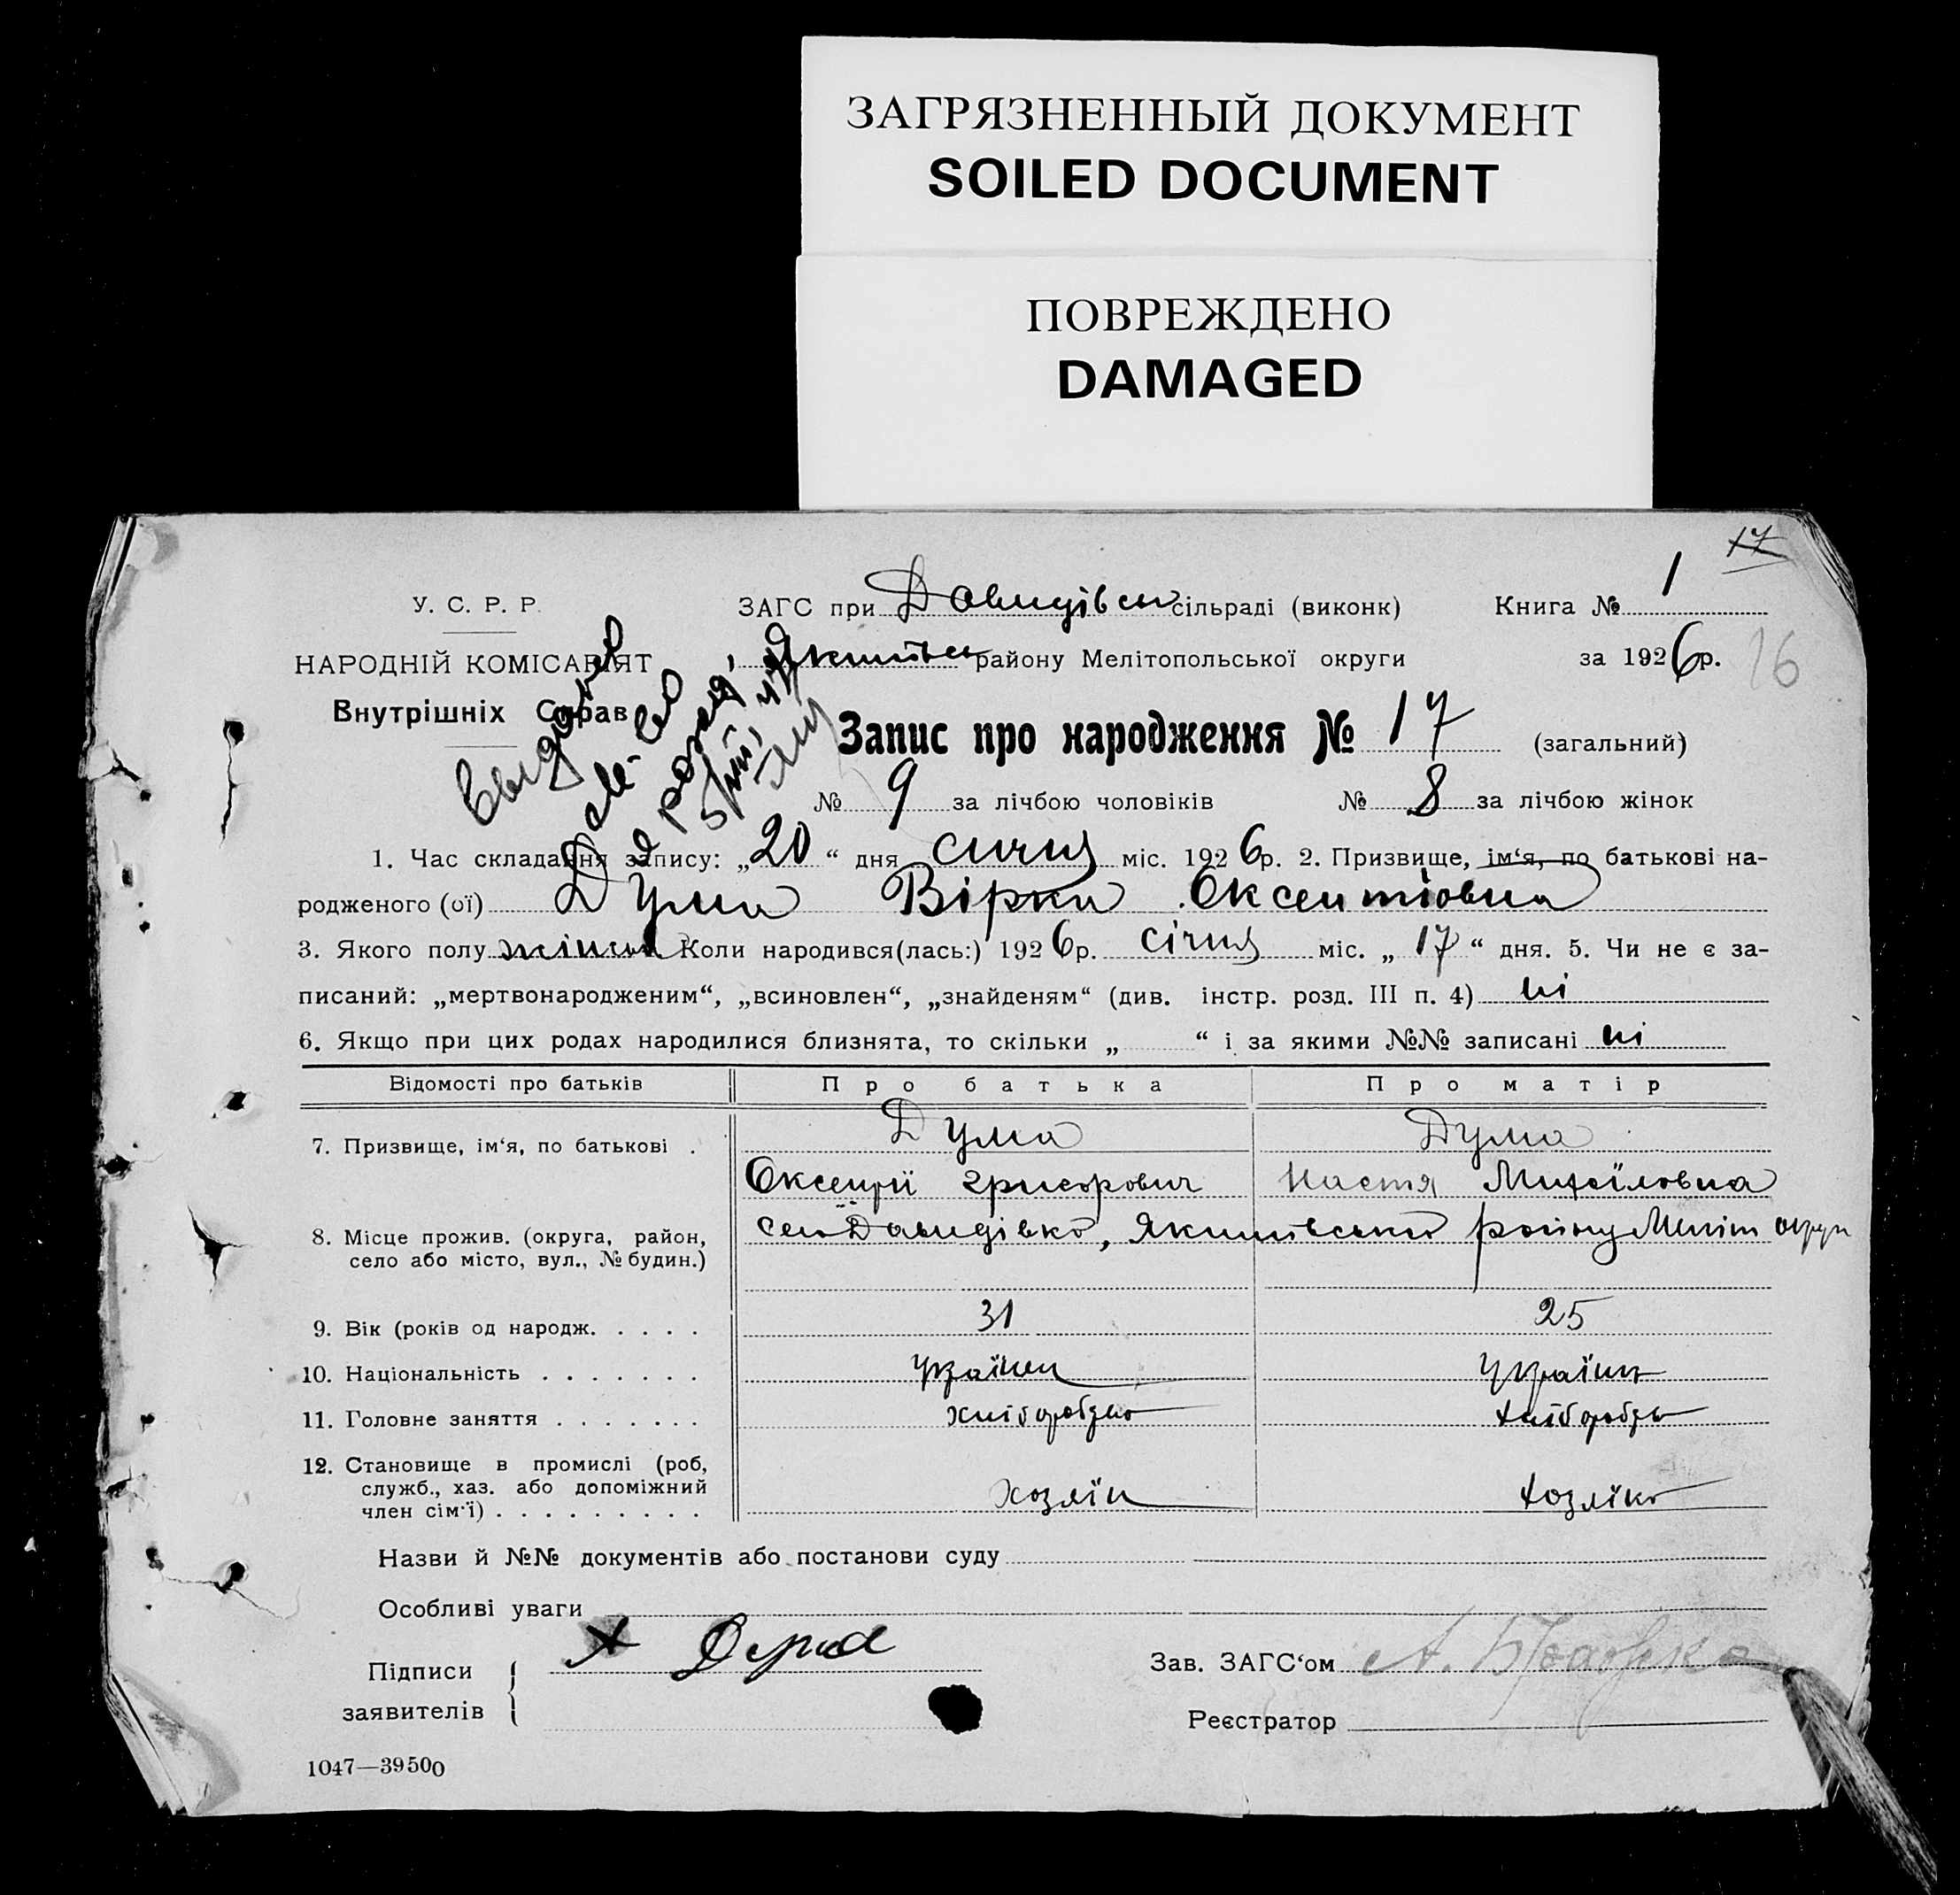 ЗАГРЯЗНЕННЫЙ ДОКУМЕНТ
SOILED DOCUMENT
ПОВРЕЖДЕНО
DAMAGED
17
У. С. Р. Р. ЗАГС при Давидівськ сільраді (виконк) Книга № 1
НАРОДНІЙ КОМІСАРІЯТ Якимівськ району Мелітопольської округи за 1926 р. 16
Внутрішніх Справ
Запис про народження № 17 (загальний)
№ 9 за лічбою чоловіків № 8 за лічбою жінок
1. Час складання запису: „20“ дня січня міс. 1926 р. 2. Призвище, ім‘я, по батькові на-
родженого (ої) Дума Вірка Оксентіовна
3. Якого полу жіноч Коли народився(лась:) 1926 р. січня міс. „17“ дня. 5. Чи не є за-
писаний: „мертвонародженим“, „всиновлен“, „знайденям“ (див. інстр. розд. III п. 4) ні
6. Якщо при цих родах народилися близнята, то скільки „ “ і за якими №№ записані ні
Відомості про батьків Про батька Про матір
7. Призвище, ім‘я, по батькові . Дума Дума
Оксентій Григорович Настя Михайловна
8. Місце прожив. (округа, район, село або місто, вул., № будин.) село Давидівка, Якимівського району Меліт округи
9. Вік (років од народж. . . . . 31 25
10. Національність . . . . . . . Українец Українка
11. Головне заняття . . . . . . . хліборобство хлібороб
12. Становище в промислі (роб,
служб., хаз. або допоміжний
член сім‘ї) . . . . . . . . . хозяїн хозяїка
Назви й №№ документів або постанови суду
Особливі уваги
Підписи
заявителів
Х Дума
Зав. ЗАГС‘ом
Реєстратор
1047—39500